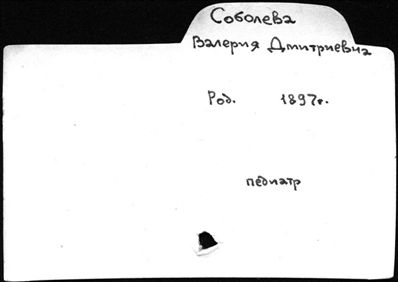 Соболева
Валерия Дмитриевна
Род. 1897г.
педиатр